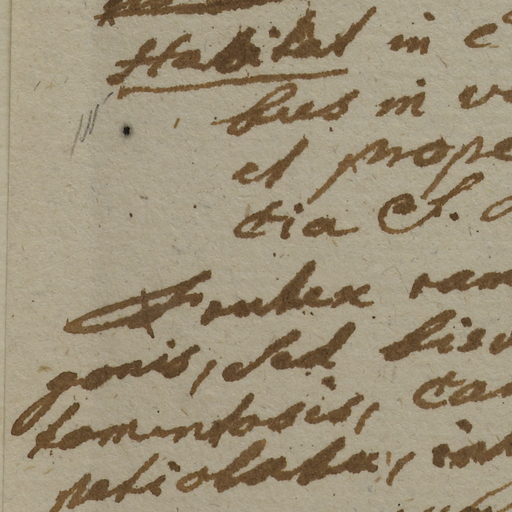 Habitat in c
bus in v
et prope
tia S.
Frutex ram
gonis, sed bisu
tomentosis, ca
petiolata, int